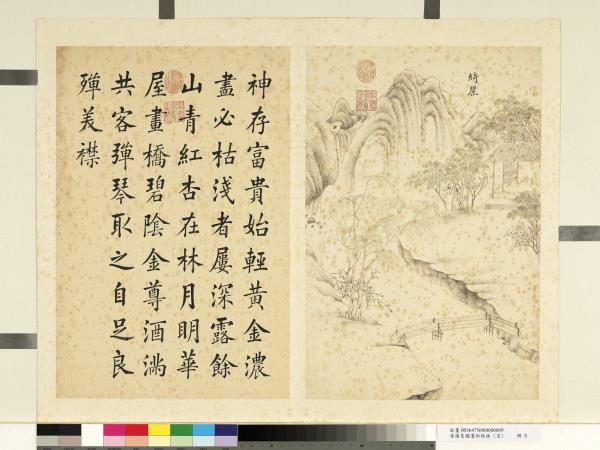 綺麗
神存富貴始輕黃金濃
盡必枯淺者屢深露餘
山青紅杏在林月明華
屋畫橋碧陰金尊酒滿
共客彈琴取之自足良
殫美襟
故畫 003647N000000009
冊 9